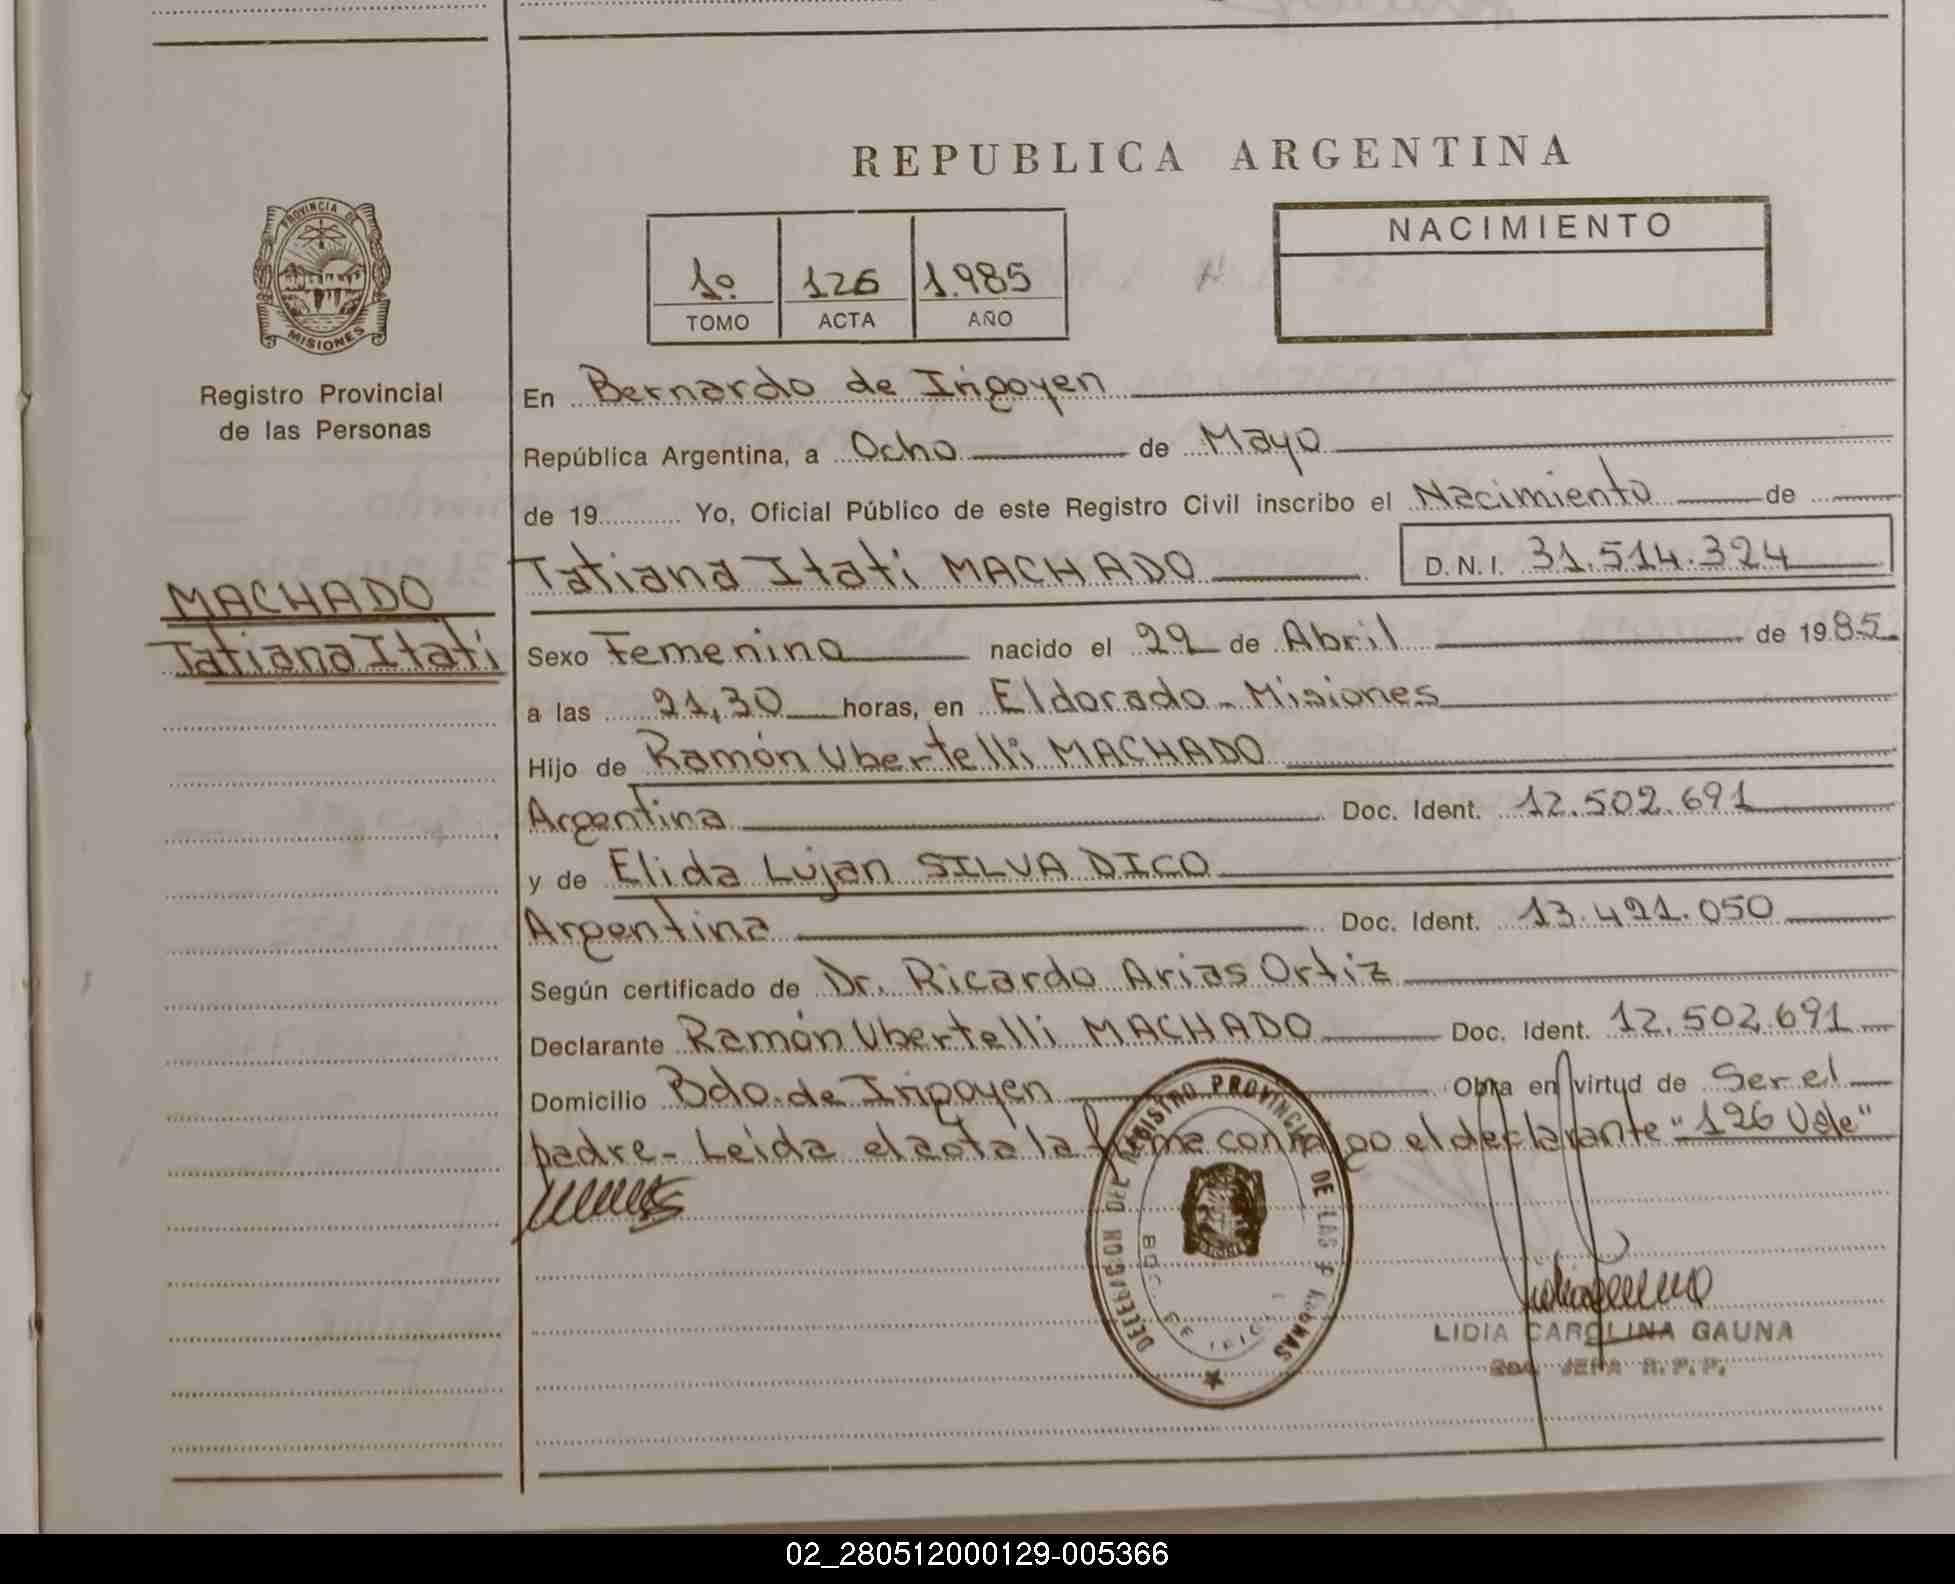 REPUBLICA ARGENTINA
PROVINCIA DE
MISIONES
Registro Provincial
de las Personas
1º 126 1.985
TOMO ACTA AÑO
NACIMIENTO
En Bernardo de Irigoyen
República Argentina, a Ocho de Mayo
de 19 Yo, Oficial Público de este Registro Civil inscribo el Nacimiento de
Tatiana Itatí MACHADO D.N.I. 31.514.324
MACHADO
Tatiana Itatí
Sexo Femenino nacido el 22 de Abril de 1985
a las 21,30 horas, en Eldorado - Misiones
Hijo de Ramón Ubertelli MACHADO
Argentina Doc. Ident. 12.502.691
y de Elida Lujan SILVA DICO
Argentina Doc. Ident. 13.421.050
Según certificado de Dr. Ricardo Arias Ortiz
Declarante Ramón Ubertelli MACHADO Doc. Ident. 12.502.691
Domicilio Bdo. de Irigoyen Obra en virtud de Ser el
padre - Leida el acta la firma conmigo el declarante "126 Vale"
REGISTRO PROVINCIAL DE LAS
LIDIA CAROLINA GAUNA
2da. JEFA R.P.P.
02_280512000129-005366